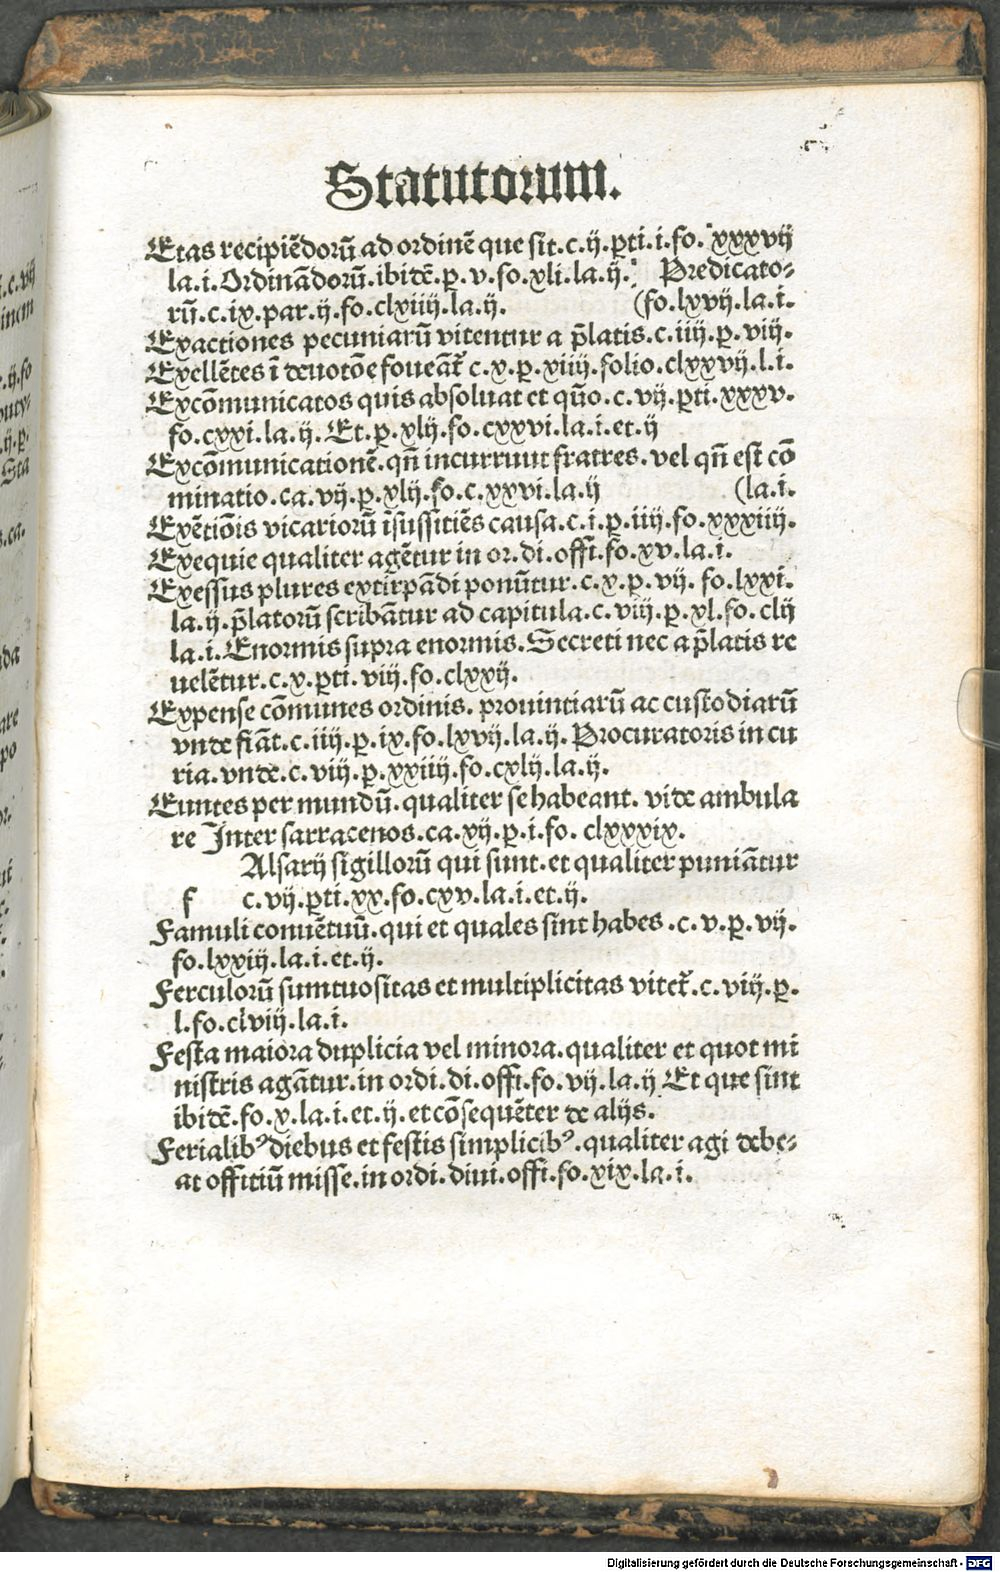 Statutorum.
Etas recipiẽdorũ ad ordinẽ que sit.c.ij.pti.i.fo. xxxvij
la.i.Ordinãdorũ.ibidẽ.p.v.fo.xli.la.ij. Predicato-
rũ.c.ix.par.ij.fo.clxiiij.la.ij. (fo.lxvij.la.i.
Exactiones pecuniarũ vitentur a p̃latis.c.iiij.p.viij.
Exellẽtes ĩ deuotõe foueãt᷑ c.x.p.xiiij.folio.clxxvij.l.i.
Excõmunicatos quis absoluat et qũo.c.vij.pti.xxxv.
fo.cxxi.la.ij.Et.p.xlij.fo.cxxvi.la.i.et.ij
Excõmunicationẽ.qñ incurrunt fratres.vel qñ est cõ
minatio.ca.vij.p.xlij.fo.c.xxvi.la.ij (la.i.
Exẽtiõis vicariorũ ĩsuffitiẽs causa.c.i.p.iiij.fo.xxxiiij.
Exequie qualiter agẽtur in or.di.offi.fo.xv.la.i.
Exessus plures extirpãdi ponũtur.c.x.p.vij. fo.lxxi.
la.ij.p̃latorũ scribãtur ad capitula.c.viij.p.xl.fo.clij
la.i.Enormis supra enormis.Secreti nec a p̃latis re
uelẽtur.c.x.pti.viij.fo.clxxij.
Expense cõmunes ordinis. prouintiarũ ac custodiarũ
vnde fiãt.c.iiij.p.ix.fo.lxvij.la.ij.Procuratoris in cu
ria.vnde.c.viij.p.xxiiij.fo.cxlij.la.ij.
Euntes per mundũ.qualiter se habeant. vide ambula
re Inter sarracenos.ca.xij.p.i.fo. clxxxix.
Alsarij sigillorũ qui sunt.et qualiter puniãtur
f c.vij.pti.xx.fo.cxv.la.i.et.ij.
Famuli conuẽtuũ.qui et quales sint habes.c.v.p.vij.
fo.lxxiij.la.i.et.ij.
Ferculorũ sumtuositas et multiplicitas vitet᷑.c.viij.p.
l.fo.clviij.la.i.
Festa maiora duplicia vel minora.qualiter et quot mi
nistris agãtur.in ordi.di.offi.fo.vij.la.ij Et que sint
ibidẽ.fo.x.la.i.et.ij.et cõsequẽter de alijs.
Ferialibꝰ diebus et festis simplicibꝰ.qualiter agi debe-
at offitiũ misse.in ordi.diui.offi.fo.xix.la.i.
Digitalisierung gefördert durch die Deutsche Forschungsgemeinschaft - DFG